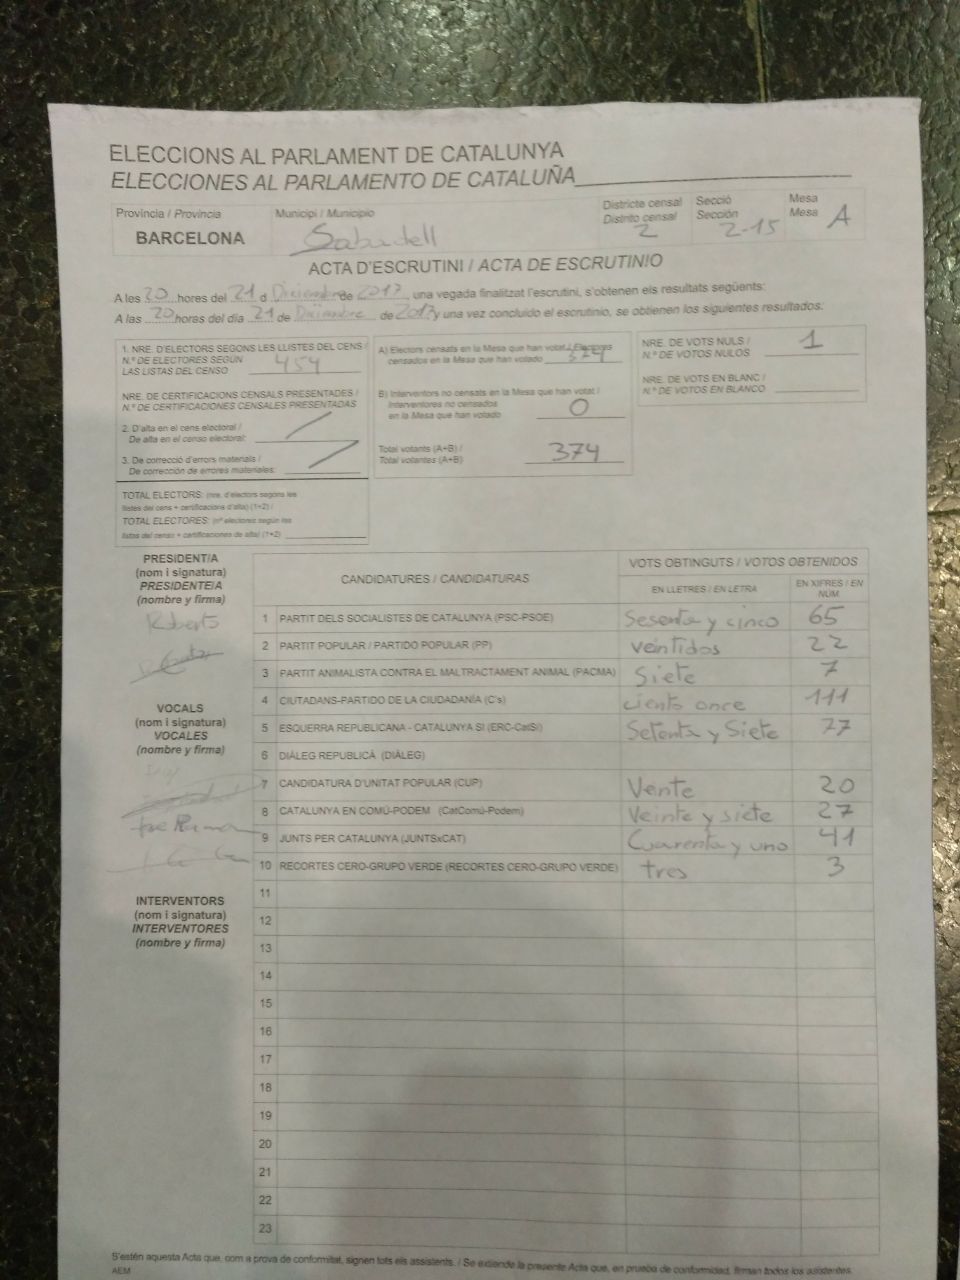 ELECCIONS AL PARLAMENT DE CATALUNYA
ELECCIONES AL PARLAMENTO DE CATALUÑA
Provincia / Provincia
BARCELONA
Municipi / Municipio
Sabadell
Districte censal
Distrito censal
2
Secció
Sección
2-15
Mesa
Mesa
A
ACTA D'ESCRUTINI / ACTA DE ESCRUTINIO
A les 20 hores del 21 d Diciembre de 2017, una vegada finalitzat l'escrutini, s'obtenen els resultats següents:
A las 20 horas del día 21 de Diciembre de 2017 y una vez concluido el escrutinio, se obtienen los siguientes resultados:
1. NRE. D'ELECTORS SEGONS LES LLISTES DEL CENS /
N.º DE ELECTORES SEGÚN
LAS LISTAS DEL CENSO 454
NRE. DE CERTIFICACIONS CENSALS PRESENTADES /
N.º DE CERTIFICACIONES CENSALES PRESENTADAS
2. D'alta en el cens electoral /
De alta en el censo electoral:
3. De correcció d'errors materials /
De corrección de errores materiales:
TOTAL ELECTORS: (nre. d'electors segons les
llistes del cens + certificacions d'alta) (1+2) /
TOTAL ELECTORES: (nº electores según las
listas del censo + certificaciones de alta) (1+2)
A) Electors censats en la Mesa que han votat / Electores
censados en la Mesa que han votado 374
B) Interventors no censats en la Mesa que han votat /
Interventores no censados
en la Mesa que han votado 0
Total votants (A+B) /
Total votantes (A+B) 374
NRE. DE VOTS NULS /
N.º DE VOTOS NULOS 1
NRE. DE VOTS EN BLANC /
N.º DE VOTOS EN BLANCO
PRESIDENT/A
(nom i signatura)
PRESIDENTE/A
(nombre y firma)
Roberto
VOCALS
(nom i signatura)
VOCALES
(nombre y firma)
INTERVENTORS
(nom i signatura)
INTERVENTORES
(nombre y firma)
CANDIDATURES / CANDIDATURAS
VOTS OBTINGUTS / VOTOS OBTENIDOS
EN LLETRES / EN LETRA
EN XIFRES / EN NÚM.
1 PARTIT DELS SOCIALISTES DE CATALUNYA (PSC-PSOE) Sesenta y cinco 65
2 PARTIT POPULAR / PARTIDO POPULAR (PP) veintidos 22
3 PARTIT ANIMALISTA CONTRA EL MALTRACTAMENT ANIMAL (PACMA) Siete 7
4 CIUTADANS-PARTIDO DE LA CIUDADANÍA (C's) ciento once 111
5 ESQUERRA REPUBLICANA - CATALUNYA SÍ (ERC-CatSí) Setenta y Siete 77
6 DIÀLEG REPUBLICÀ (DIÀLEG)
7 CANDIDATURA D'UNITAT POPULAR (CUP) Veinte 20
8 CATALUNYA EN COMÚ-PODEM (CatComú-Podem) Veinte y siete 27
9 JUNTS PER CATALUNYA (JUNTSxCAT) Cuarenta y uno 41
10 RECORTES CERO-GRUPO VERDE (RECORTES CERO-GRUPO VERDE) tres 3
11
12
13
14
15
16
17
18
19
20
21
22
23
S'estén aquesta Acta que, com a prova de conformitat, signen tots els assistents. / Se extiende la presente Acta que, en prueba de conformidad, firman todos los asistentes.
AEM